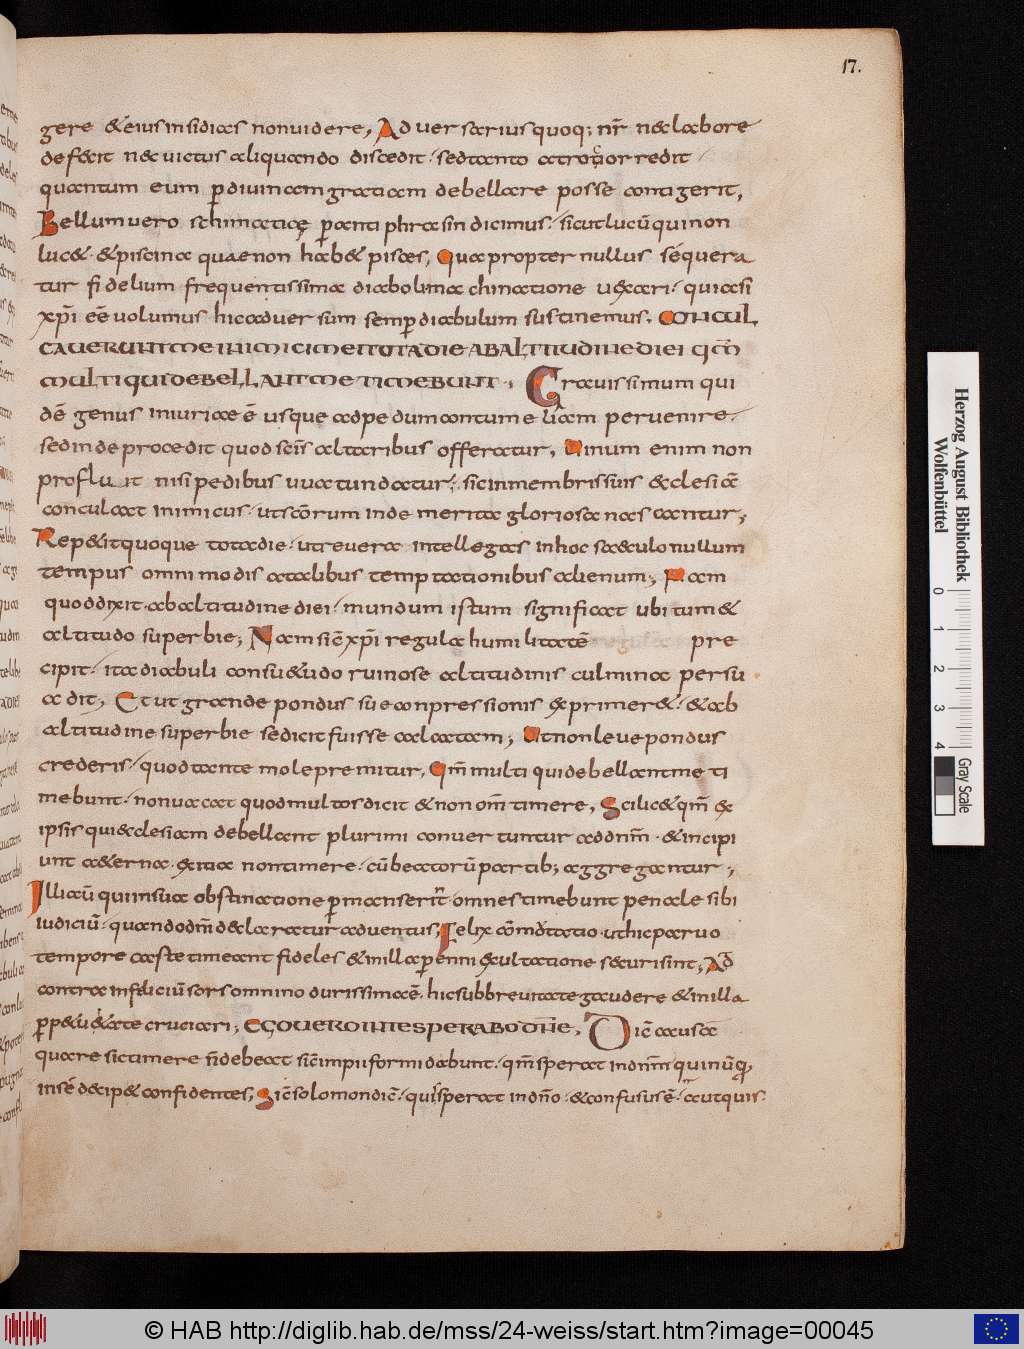 17.
gere & eius insidias non videre, Adversarius quoq; nr̄ nec labore
deficit nec victus aliquando discedit. sed tanto atrocior redit.
quantum eum p divinam gratiam debellare posse contigerit,
Bellum vero schimaticę p antiphrasin dicimus. sicut lucū qui non
luc&. & piscina quae non hab& pisces, Quapropter nullus sequera
tur fidelium frequentissima diabolu machinatione vexari. quia si
xpi eē volumus hic adversum semp diabulum sustinemus. CONCUL
CAVERUNT ME INIMICI MEI TOTA DIE AB ALTITUDINE DIEI qm̄
MULTI QUI DEBELLANT ME TIMEBUNT. Gravissimum qui
dē genus iniuriae ē usque ad pedum contumeliam pervenire.
sed inde procedit quod scīs altaribus offeratur, Vinum enim non
profluit nisi pedibus uva tundatur. sic in membris suis ecclesiā
conculcat inimicus. ut scōrum inde merita gloriosa nascantur,
Repetit quoque tota die. ut revera intellegas in hoc saeculo nullum
tempus omnimodis a talibus temptationibus alienum; Nam
quod dixit. ab altitudine diei. mundum istum significat ubi tum&
altitudo superbie; Nam sic xpi regula humilitatē pre
cipit. ita diabuli consuetudo ruinose altitudinis culmina persu
adit, Et ut grande pondus sue conpressionis exprimer&. & ab
altitudine superbie se dicit fuisse calcatam; Ut non leve pondus
crederis. quod tante mole premitur, Qm̄ multi qui debellant me ti
mebunt. non vacat quod multos dicit & non om̄ timere, Scilic& qm̄ ex
ipsis qui ecclesiam debellant plurimi convertuntur ad dnm̄. & incipi
unt aeterna. ex ita non timere. cū beatorū partib; aggregantur;
Illi aū qui in sua obstinatione pmanserit. omnes timebunt penale sibi
iudiciū. quando dnī declaratur adventus; Felix cōmutatio. ut hic parvo
tempore caste timeant fideles & in illa perenni exultatione securi sint, Ad
contra infeliciū sors omnino durissima ē. hic sub brevitate gaudere & in illa
ppetuitate cruciari; EGO VERO IN TE SPERABO DNE, Dic causa
quare sic timere n̄ debeat sic impii formidabunt. qm̄ sperat in dnm̄. qui nūq,
in sē decip& confidentes, Sic solomon dic̄. quis sperat in dn̄o. & confusus ē. aut quis.
Herzog August Bibliothek
Wolfenbüttel
0 1 2 3 4
Gray Scale
© HAB http://diglib.hab.de/mss/24-weiss/start.htm?image=00045